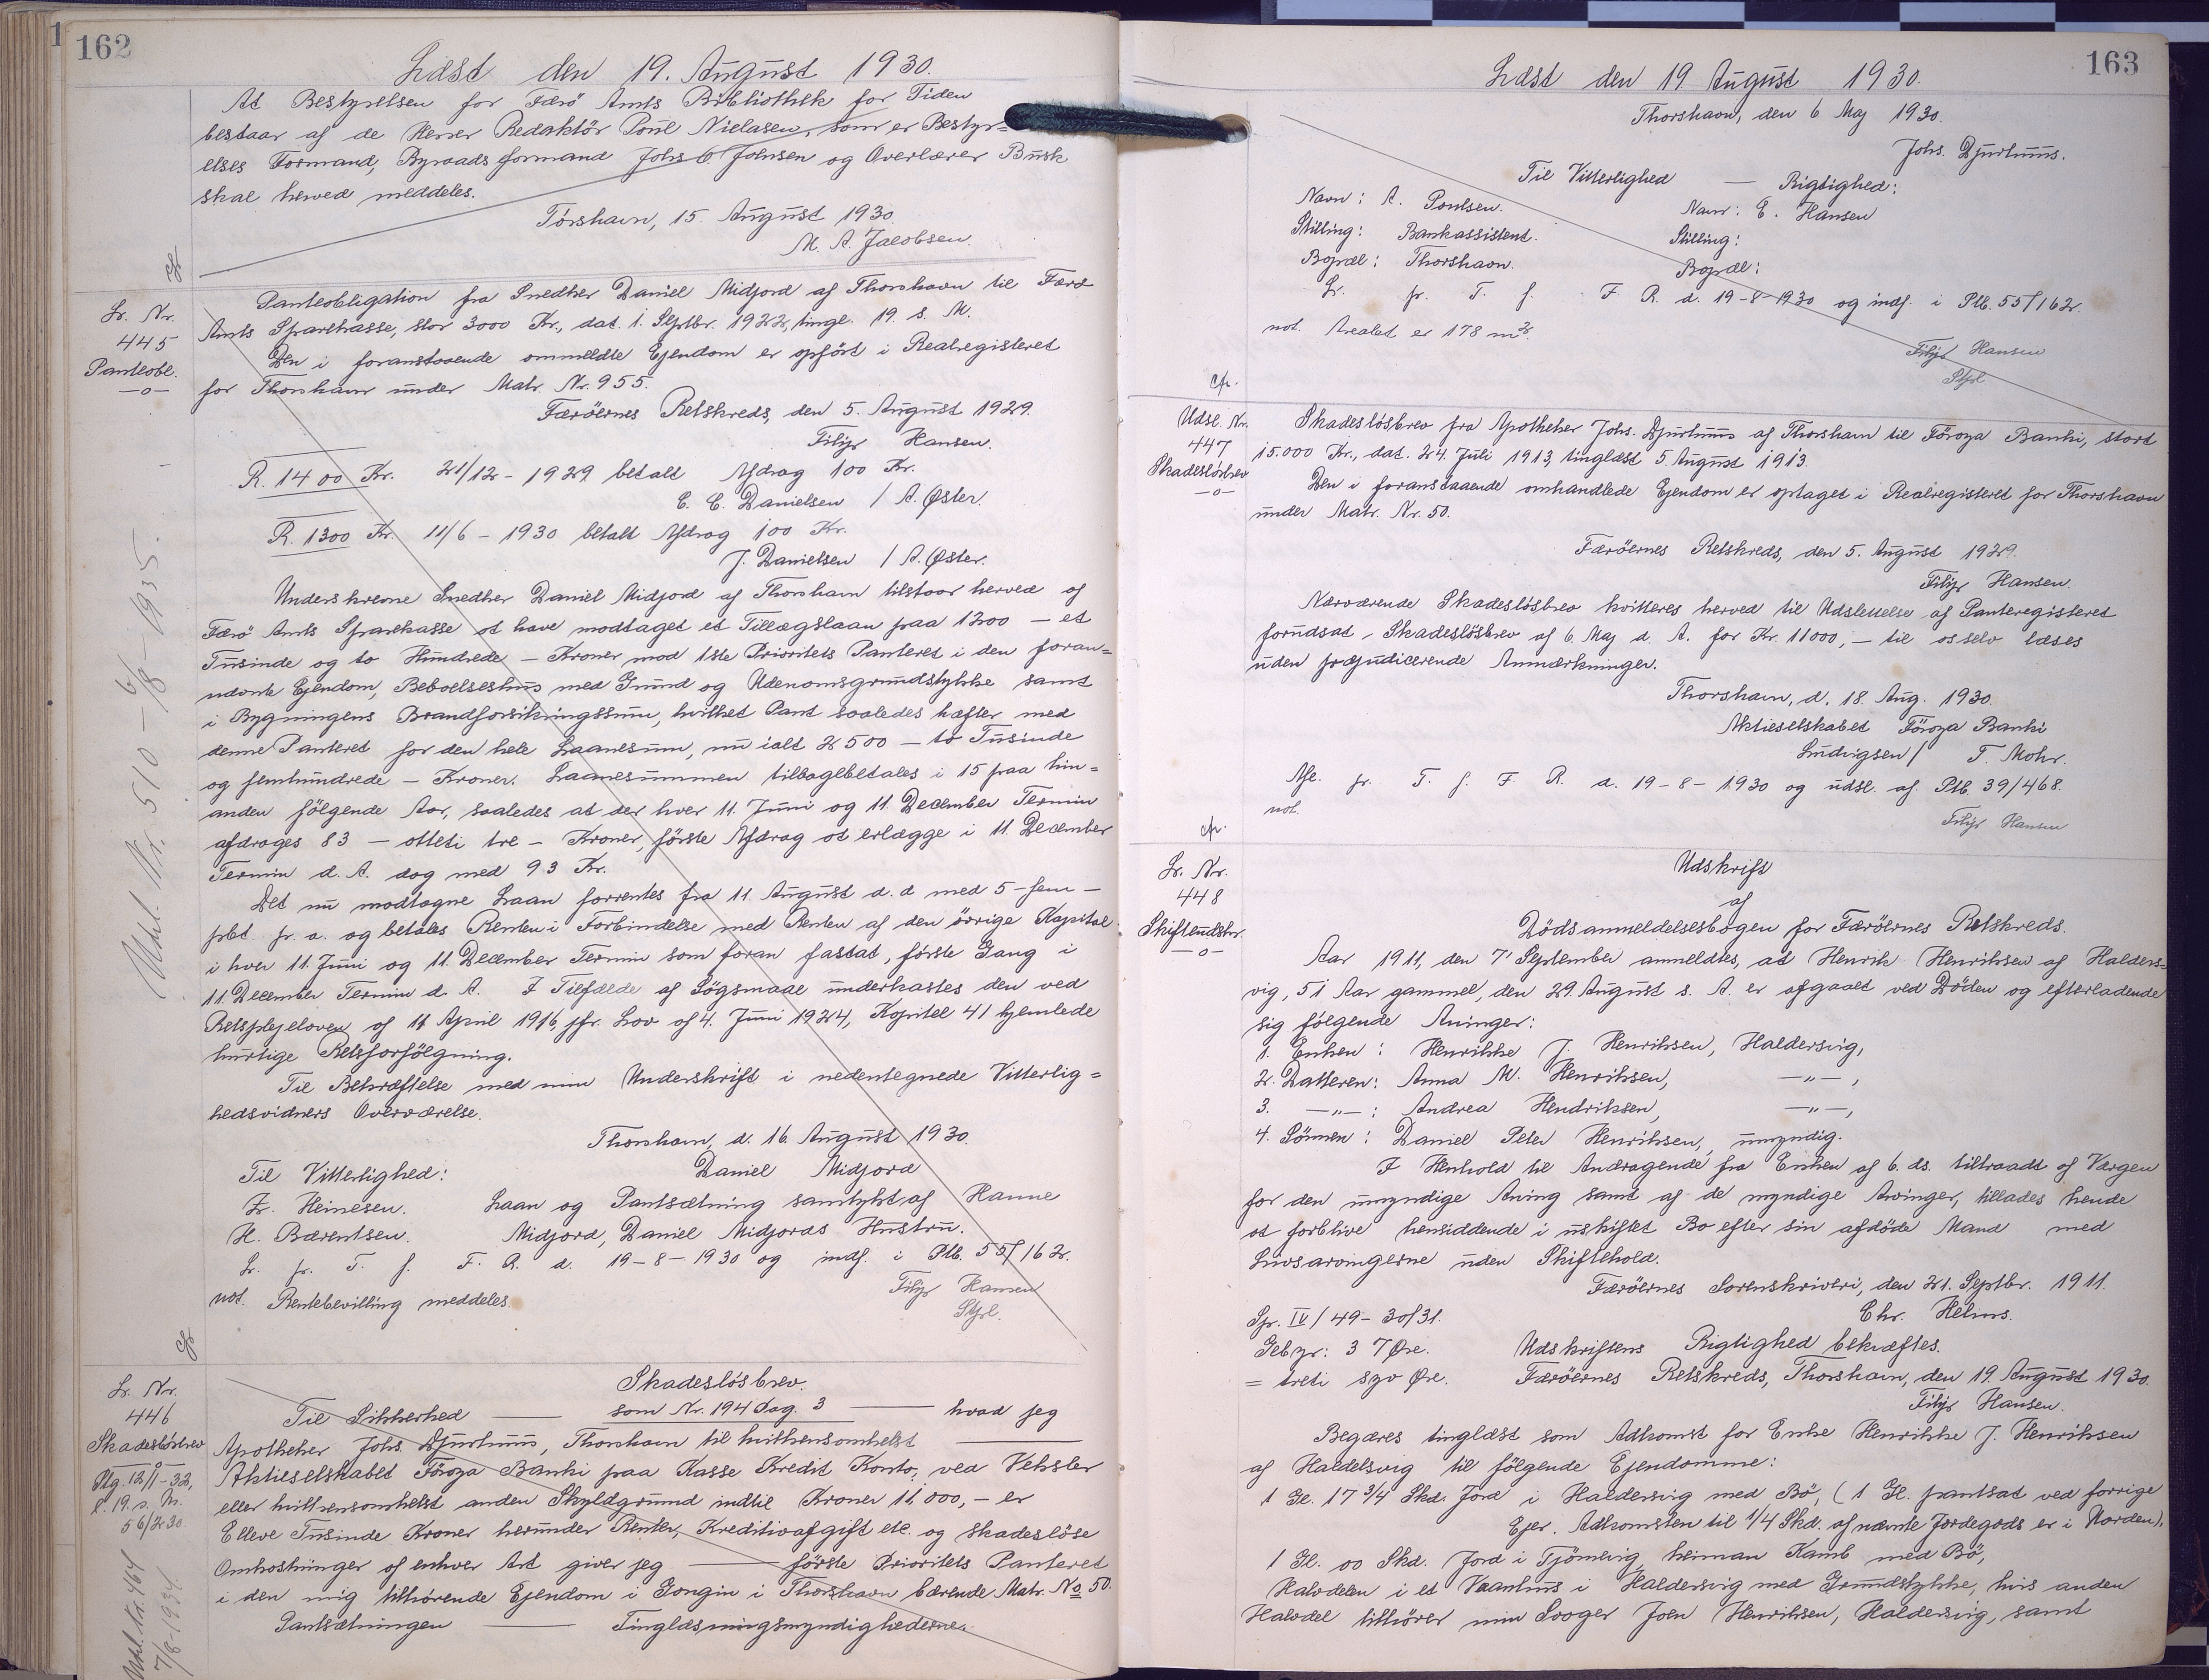 162
Læst den 19. August 1930.
At Bestyrelsen for Færö Amts Bibliothek for Tiden
bestaar af de Herrer Redaktör Poul Nielasen, som er Bestyr=
elses Formand, Byraadsformand Johs. Johnsen og Overlærer Busk
skal herved meddeles.
Tórshavn, 15. August 1930.
M. A. Jacobsen.
Lr. Nr.
445
Panteobl.
—o—
Panteobligation fra Snedker Daniel Midjord af Thorshavn til Færö
Amts Sparekasse, stor 3000 Kr., dat. 1. Septbr. 1922, tingl. 19. s. M.
Den i foranstaaende ommeldte Ejendom er opfört i Realregisteret
for Thorshavn under Matr. Nr. 955.
Færöernes Retskreds, den 5. August 1929.
Filip Hansen.
R. 1400 Kr. 21/12 - 1929 betalt Afdrag 100 Kr.
C. C. Danielsen / A. Øster.
R. 1300 Kr. 11/6 - 1930 betalt Afdrag 100 Kr.
J. Danielsen / A. Øster.
Underskrevne Snedker Daniel Midjord af Thorshavn tilstaar herved af
Færö Amts Sparekasse at have modtaget et Tillægslaan paa 1200 — et
Tusinde og to Hundrede — Kroner mod 1ste Prioritets Panteret i den foran=
nævnte Ejendom, Beboelseshus med Grund og Udenomsgrundstykke samt
i Bygningens Brandforsikringssum, hvilket Pant saaledes hæfter med
denne Panteret for den hele Laanesum, nu ialt 2500 — to Tusinde
og femhundrede — Kroner. Laanesummen tilbagebetales i 15 paa hin=
anden fölgende Aar, saaledes at der hver 11. Juni og 11. December Termin
afdrages 83 — otteti tre — Kroner, förste Afdrag at erlægge i 11. December
Termin d. A. dog med 93 Kr.
Det nu modtagne Laan forrentes fra 11. August d. d med 5 - fem —
pCt. p. a. og betales Renten i Forbindelse med Renten af den övrige Kapital
i hver 11. Juni og 11. December Termin som foran fastsat, förste Gang i
11. December Termin d. A. I Tilfælde af Sögsmaal underkastes den ved
Retsplejeloven af 11 April 1916, jfr. Lov af 4. Juni 1924, Kapitel 41 hjemlede
hurtige Retsforfölgning.
Til Bekræftelse med min Underskrift i nedentegnede Vitterlig=
hedsvidners Overværelse.
Thorshavn, d. 16. August 1930.
Til Vitterlighed: Daniel Midjord
Z. Heinesen. Laan og Pantsætning samtykt af Hanne
H. Bærentsen. Midjord, Daniel Midjords Hustru.
Lr. pr. T. f. F. R. d. 19-8-1930 og indf. i Ptb. 55/162.
not. Rentebevilling meddeles.
Filip Hansen
Stfl.
Udsl. Nr. 510 - 6/8 1935.
Lr. Nr.
446
Skadeslösbrev
Ptg. 12/1-32,
l. 19. s. M.
56/230.
Udsl. Nr. 464
7/8-1934
Skadeslösbrev.
som Nr. 194 Dag. 3
Til Sikkerhed —— —— hvad jeg
Apotheker Johs. Djurhuus, Thorshavn til hvilkensomhelst ——
Aktieselskabet Föroya Banki paa Kasse Kredit Konto, ved Veksler
eller hvilkensomhelst anden Skyldgrund indtil Kroner 11.000,- er
Elleve Tusinde Kroner herunder Renter, Kreditivafgift etc. og skadeslöse
Omkostninger af enhver Art giver jeg —— förste Prioritets Panteret
i den mig tilhörende Ejendom i Gongin i Thorshavn bærende Matr. No 50.
Pantsætningen —— Tinglæsningsmyndighederne.
163
Læst den 19 August 1930.
Thorshavn, den 6 Maj 1930.
Johs. Djurhuus.
Til Vitterlighed — Rigtighed:
Navn: A. Poulsen. Navn: E. Hansen
Stilling: Bankassistent. Stilling:
Bopæl: Thorshavn. Bopæl:
Lr. pr. T. f. F. R. d. 19-8-1930 og indf. i Ptb. 55/162.
not. Arealet er 178 m2.
Filip Hansen
Stfl
cfr.
Udsl. Nr.
447
Skadeslösbrev
—o—
Skadeslösbrev fra Apotheker Johs. Djurhuus af Thorshavn til Föroya Banki, stort
15.000 Kr., dat. 24. Juli 1913, tinglæst 5. August 1913.
Den i foranstaaende omhandlede Ejendom er optaget i Realregisteret for Thorshavn
under Matr. Nr. 50.
Færöernes Retskreds, den 5. August 1929.
Filip Hansen.
Nærværende Skadeslösbrev kvitteres herved til Udslettelse af Panteregisteret
forudsat, Skadeslösbrev af 6. Maj d. A. for Kr. 11000,- til os selv læses
uden præjudicerende Anmærkninger.
Thorshavn, d. 18. Aug. 1930.
Aktieselskabet Föroya Banki
Ludvigsen / T. Mohr.
Afl. pr. T. f. F. R. d. 19-8-1930 og udsl. af Ptb. 39/468.
not.
Filip Hansen
cfr.
Lr. Nr.
448
Skifteudskr.
—o—
Udskrift
af
Dödsanmeldelsesbogen for Færöernes Retskreds.
Aar 1911, den 7' September anmeldtes, at Henrik Henriksen af Halders=
vig, 51 Aar gammel, den 29. August s. A. er afgaaet ved Döden og efterladende
sig fölgende Arvinger:
1. Enken: Henrikke J. Henriksen, Haldersvig,
2. Datteren: Anna M. Henriksen, —"—,
3. —"—: Andrea Hendriksen, —"—,
4. Sönnen: Daniel Peter Henriksen, umyndig.
I Henhold til Andragende fra Enken af 6. ds. tiltraadt af Værgen
for den umyndige Arving samt af de myndige Arvinger, tillades hende
at forblive hensiddende i uskiftet Bo efter sin afdöde Mand med
Livsarvingerne uden Skiftehold.
Færöernes Sorenskriveri, den 21. Septbr. 1911.
Chr. Helms.
Spr. IV / 49 - 30/31.
Gebyr: 37 Øre. Udskriftens Rigtighed bekræftes.
= treti syv Øre. Færöernes Retskreds, Thorshavn, den 19. August 1930.
Filip Hansen.
Begæres tinglæst som Adkomst for Enke Henrikke J. Henriksen
af Haldelsvig til fölgende Ejendomme:
1 Gl. 17 3/4 Skd. Jord i Haldersvig med Bö, (1 Gl. pantsat ved forrige
Ejer. Adkomsten til 1/4 Skd. af nævnte Jordegods er i Norden),
1 Gl. 00 Skd. Jord i Tjörnevig, heiman Kamb med Bö,
Halvdelen i et Vaanhus i Haldersvig med Grundstykke, hvis anden
Halvdel tilhörer min Svoger Joen Henriksen, Haldersvig, samt